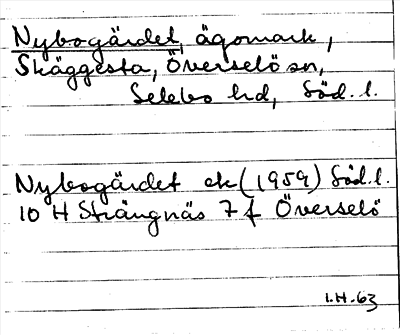 Nybogärdet, ägomark,
Skäggesta, Överselö sn,
Selebo hd, Söd. l.
Nybogärdet ek (1959) Söd. l.
10 H Strängnäs 7 f Överselö
I.H.63